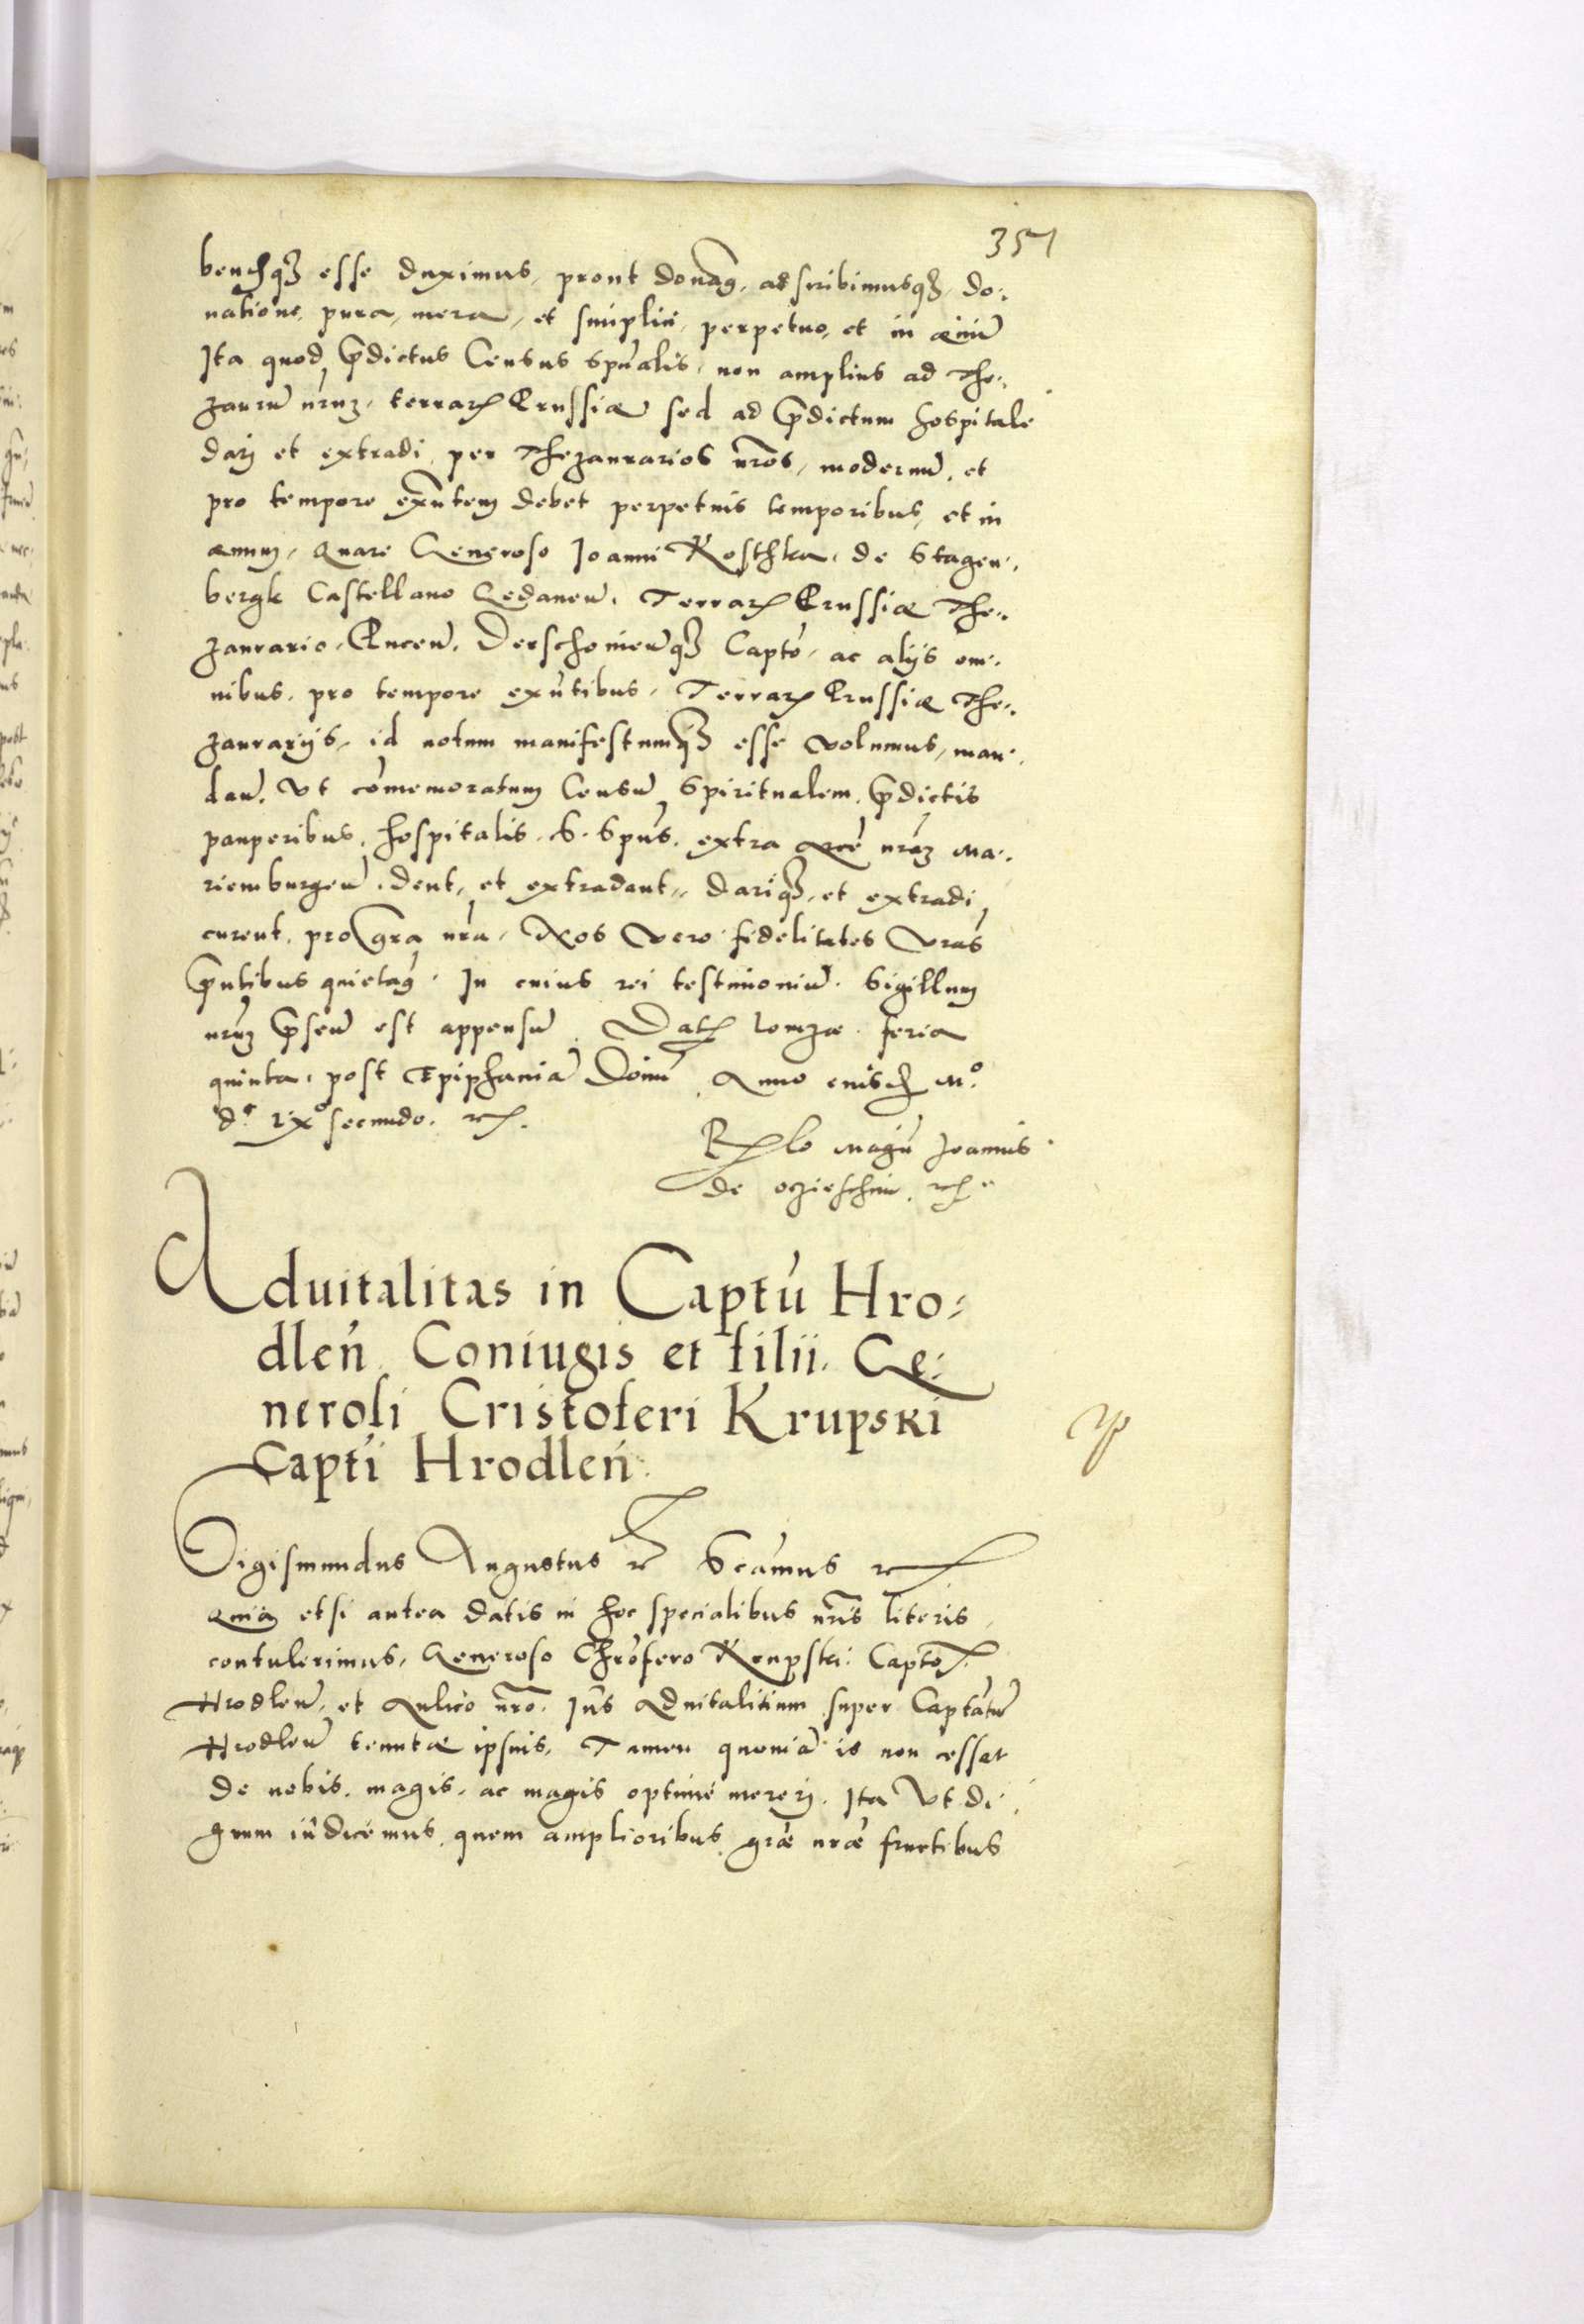 357
bendqz esse duximus, prout donag, adscribimusqz, do:
natione, pura, mera, et simplici, perpetuo, et in aeuu
Ita quod pdictus Census spualis, non amplius ad The:
zauru nrum, terrar Prussiae sed ad pdictum hospitale
darj et extradi, per Thezaurarios nros, modernu, et
pro tempore exntem debet perpetuis temporibus, et in
aeuum, Quare Generoso Joanni Kosthka, de Stagen:
bergk Castellano Gedanen, Terrar Prussiae The:
zaurario, Pucen, Derschouienqz Capto, ac alijs om:
nibus, pro tempore exntibus, Terrar Prussiae The:
zaurarijs, id notum manifestumqz esse volumus, man:
dan, Vt comemoratum Censu Spiritualem, pdictis
pauperibus, hospitalis, S. Spus, extra Arce nram Ma:
riemburgen, dent, et extradant, dariqz, et extradi
curent, pro gra nra, Nos vero fidelitates vras
pntibus quietag. In cuius rei testimoniu. Sigillum
nrum psen est appensu. Dat Lomzae feria
quinta, post Epiphania Domi Anno eiusd Mº.
dº Lxº secundo.
Rlo Magci Joannis
de oczieschin.
Aduitalitas in Captu Hro:
dlen Coniugis et filii Ge:
nerosi Cristoferi Krupski
Capti Hrodlen
Sigismundus Augustus Scamus
Quia etsi antea datis in hoc specialibus nris literis
contulerimus, Generoso Chrofero Krupski Capto
Hrodlen, et Aulico nro, Jus Aduitalitium super Captatu
Hrodlen tenutae ipsius, Tamen quonia is non cessat
de nobis, magis, ac magis optime mererj, Ita Vt di:
gnum iudicemus, quem amplioribus grae nrae fructibus